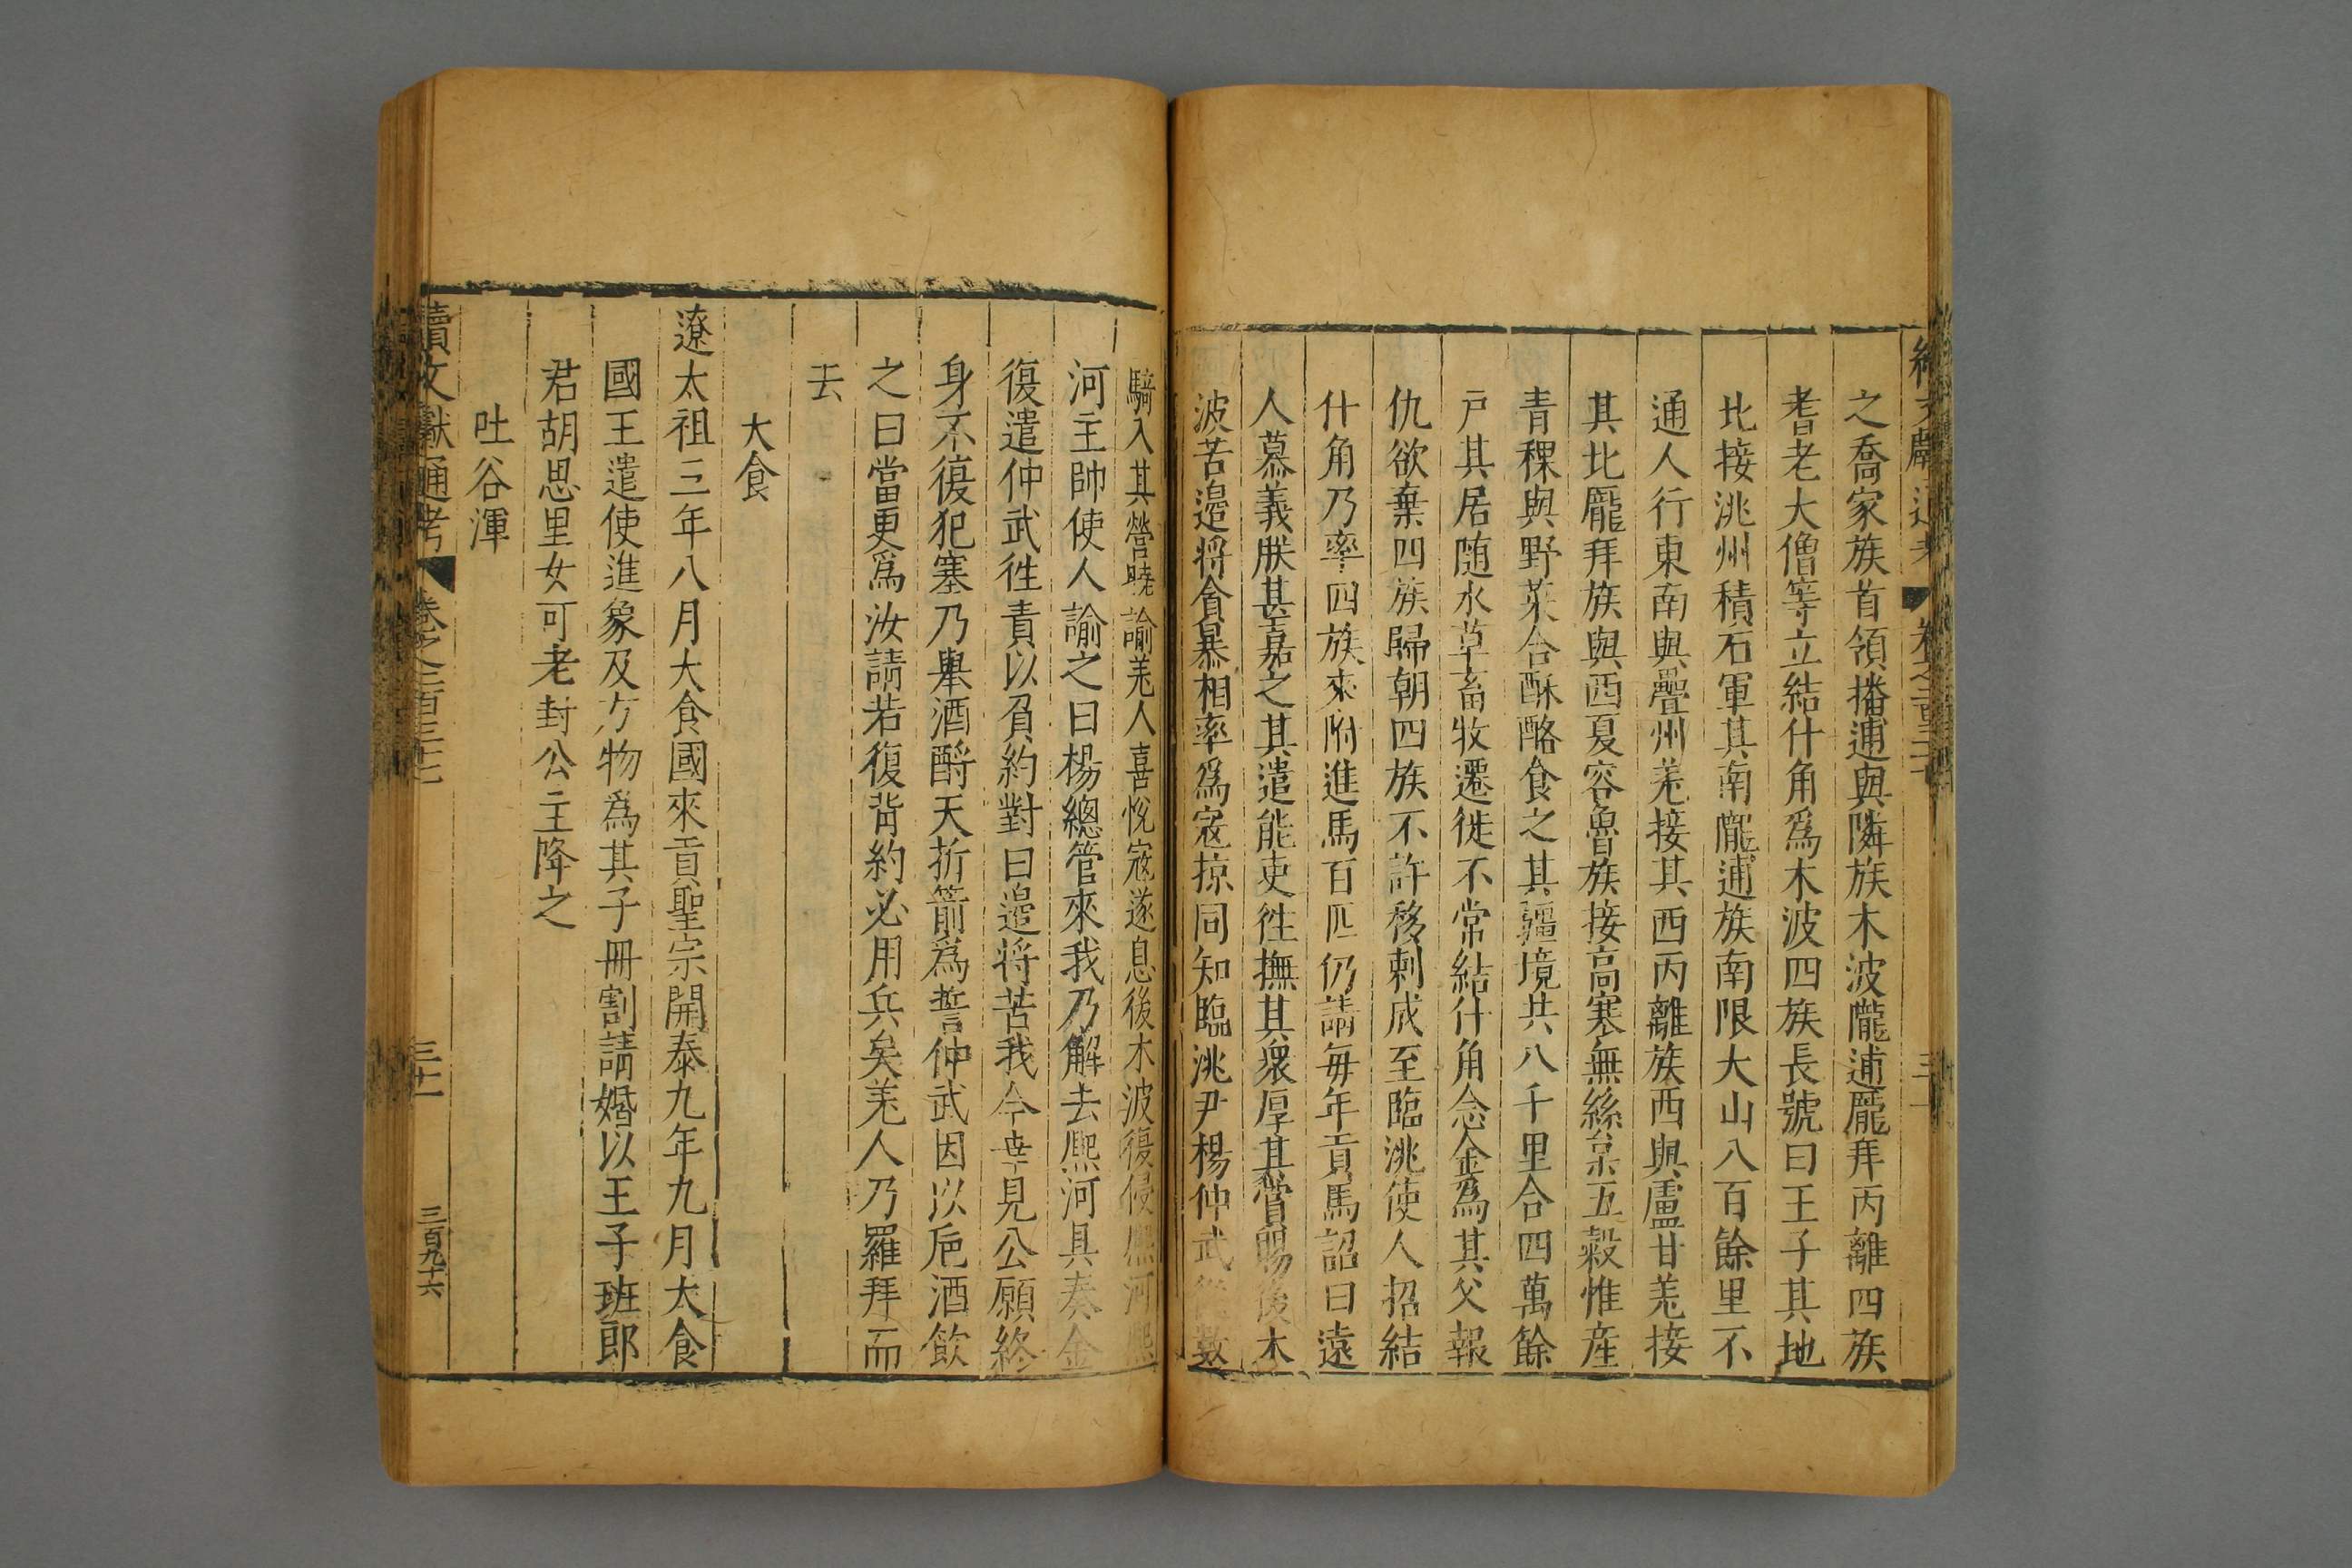 之喬家族首領播逋與隣族木波隴逋龐拜丙離四族
耆老大僧等立結什角爲木波四族長號曰王子其地
北接洮州積石軍其南隴逋族南限大山八百餘里不
通人行東南與疊州羌接其西丙離族西與盧甘羌接
其北龐拜族與西夏容魯族接高寒無絲枲五穀惟産
青稞與野菜合酥酪食之其疆境共八千里合四萬餘
戸其居随水草畜牧遷徙不常結什角念金爲其父報
仇欲棄四族歸朝四族不許移剌成至臨洮使人招結
什角乃率四族來附進馬百匹仍請每年貢馬詔曰遠
人慕義朕甚嘉之其遣能吏徃撫其衆厚其賞賜後木
波苦邉將貪暴相率爲寇掠同知臨洮尹楊仲武數
騎入其營曉諭羌人喜悅寇遂息後木波復侵熙河熙
河主帥使人諭之曰楊總管來我乃解去熈河具奏金
復遣仲武徃責以負約對曰邉将苦我今幸見公願終
身不復犯塞乃舉酒酹天折箭爲誓仲武因以巵酒飲
之曰當更爲汝請若復背約必用兵矣羌人乃羅拜而
去
大食
遼太祖三年八月大食國來貢聖宗開泰九年九月大食
國王遣使進象及方物爲其子冊割請婚以王子班郎
君胡思里女可老封公主降之
吐谷渾
續文獻通考 卷之二百三十七
三十一
三百九十六